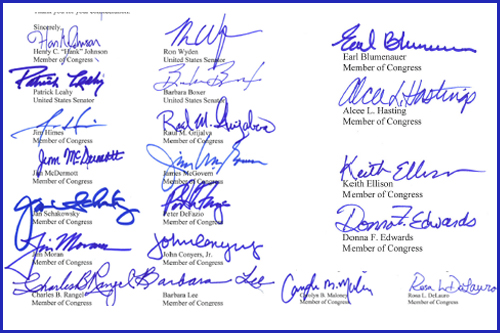 Sincerely,
Hank Johnson
Henry C. "Hank" Johnson
Member of Congress
Ron Wyden
United States Senator
Earl Blumenauer
Earl Blumenauer
Member of Congress
Patrick Leahy
Patrick Leahy
United States Senator
Barbara Boxer
Barbara Boxer
United States Senator
Alcee L. Hastings
Alcee L. Hasting
Member of Congress
Jim Himes
Member of Congress
Raúl M. Grijalva
Raul M. Grijalva
Member of Congress
Jim McDermott
Jim McDermott
Member of Congress
James McGovern
Member of Congress
Keith Ellison
Keith Ellison
Member of Congress
Jan Schakowsky
Jan Schakowsky
Member of Congress
Peter DeFazio
Member of Congress
Donna F. Edwards
Donna F. Edwards
Member of Congress
Jim Moran
Jim Moran
Member of Congress
John Conyers
John Conyers, Jr.
Member of Congress
Charles B. Rangel
Charles B. Rangel
Member of Congress
Barbara Lee
Barbara Lee
Member of Congress
Carolyn B. Maloney
Member of Congress
Rosa L. DeLauro
Rosa L. DeLauro
Member of Congress